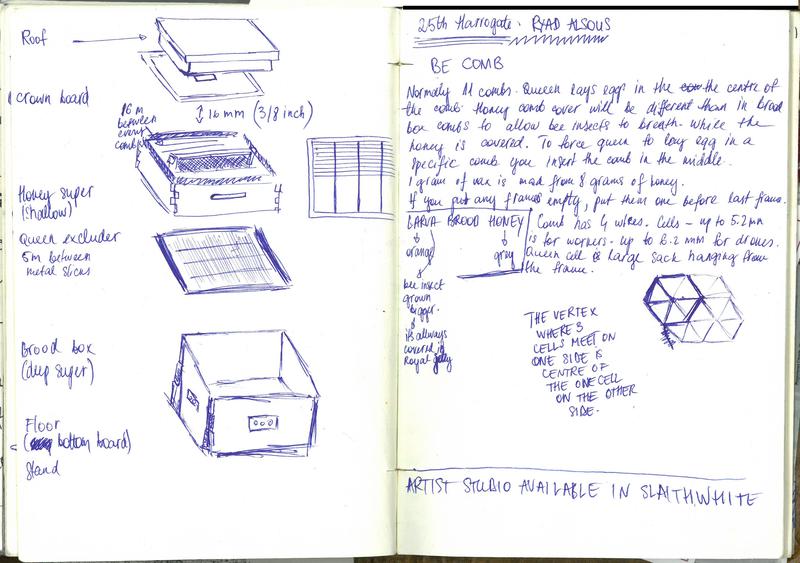 Roof
Crown board
16 m
between
every
comb
16 mm (3/8 inch)
Honey super
(shallow)
Queen excluder
5m between
metal sticks
Brood box
(deep super)
Floor
( bottom board)
Stand
25th Harrogate - RYAD ALSOUS
BE COMB
Normaly 11 combs. Queen lays eggs in the the centre of
the comb. Honey comb cover will be different than in brood
box combs to allow bee insects to breath. While the
honey is covered. To force queen to lay egg in a
specific comb you insert the comb in the middle.
1 gram of wax is mad from 8 grams of honey.
If you put any frames empty, put them one before last frame.
LARVA BROOD HONEY
orange
grey
bee insect
grown
bigger.
its allways
covered in
Royal jelly
Comb has 4 wires. Cells - up to 5.2 mm
is for workers - up to 6.2 mm for drones.
Queen cell is large sack hanging from
the frame.
THE VERTEX
WHERE 3
CELLS MEET ON
ONE SIDE IS
CENTRE OF
THE ONE CELL
ON THE OTHER
SIDE.
ARTIST STUDIO AVAILABLE IN SLAITHWHITE